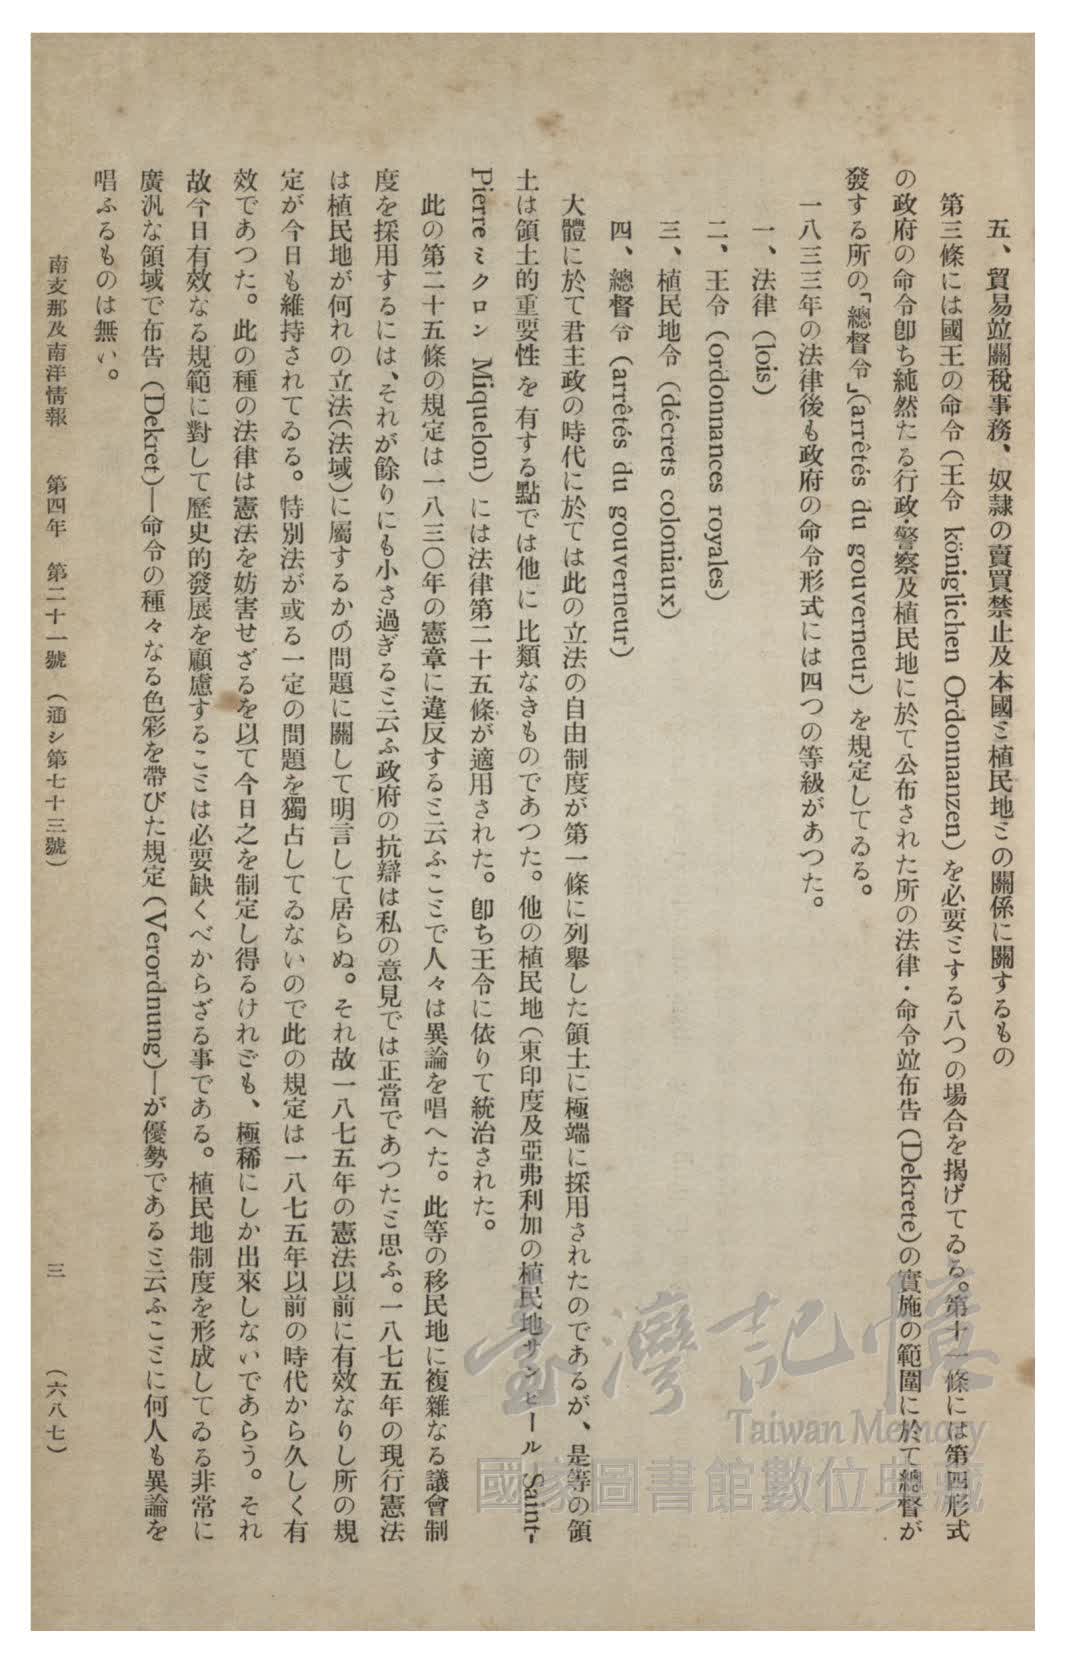 五、貿易竝關稅事務、奴隷の賣買禁止及本國ミ植民地ミの關係に關するもの
第三條には國王の命令（王令 königlichen Ordonnanzen）を必要ミする八つの場合を揭げてゐる。第十一條には第四形式
の政府の命令卽ち純然たる行政・警察及植民地に於て公布された所の法律・命令竝布告（Dekrete）の實施の範圍に於て總督が
發する所の「總督令」（arrêtés du gouverneur）を規定してゐる。
一八三三年の法律後も政府の命令形式には四つの等級があつた。
一、法律（lois）
二、王令（ordonnances royales）
三、植民地令（décrets coloniaux）
四、總督令（arrêtés du gouverneur）
大體に於て君主政の時代に於ては此の立法の自由制度が第一條に列擧した領土に極端に採用されたのであるが、是等の領
土は領土的重要性を有する點では他に比類なきものであつた。他の植民地（東印度及亞弗利加の植民地サンピール Saint-
Pierre ミクロン Miquelon）には法律第二十五條が適用された。卽ち王令に依りて統治された。
此の第二十五條の規定は一八三〇年の憲章に違反するミ云ふこミで人々は異論を唱へた。此等の移民地に複雜なる議會制
度を採用するには、それが餘りにも小さ過ぎるミ云ふ政府の抗辯は私の意見では正當であつたミ思ふ。一八七五年の現行憲法
は植民地が何れの立法（法域）に屬するかの問題に關して明言して居らぬ。それ故一八七五年の憲法以前に有效なりし所の規
定が今日も維持されてゐる。特別法が或る一定の問題を獨占してゐないので此の規定は一八七五年以前の時代から久しく有
效であつた。此の種の法律は憲法を妨害せざるを以て今日之を制定し得るけれごも、極稀にしか出來しないであらう。それ
故今日有效なる規範に對して歷史的發展を顧慮するこミは必要缺くべからざる事である。植民地制度を形成してゐる非常に
廣汎な領域で布告（Dekret）—命令の種々なる色彩を帶びた規定（Verordnung）—が優勢であるミ云ふこミに何人も異論を
唱ふるものは無い。
南支那及南洋情報　第四年　第二十一號　（通シ第七十三號）　三　（六八七）
臺灣記憶
Taiwan Memory
國家圖書館數位典藏